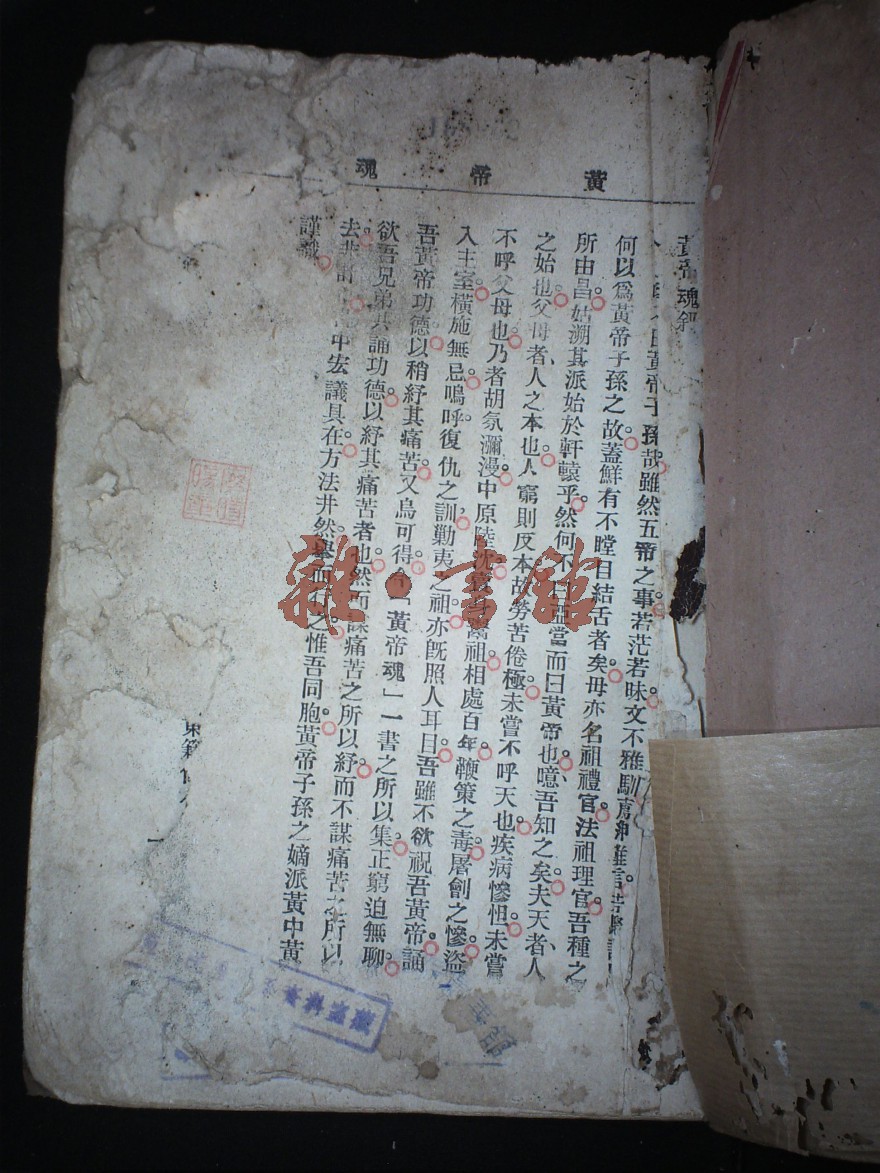 黃帝魂
黃帝魂敘
曰黃帝子孫哉雖然五帝之事若茫若昧文不雅馴
何以爲黃帝子孫之故蓋鮮有不瞠目結舌者矣毋亦名祖禮官法祖理官吾種之
所由昌姑溯其派始於軒轅乎然何不當而曰黃帝也噫吾知之矣夫天者人
之始也父母者人之本也人窮則反本故勞苦倦極未嘗不呼天也疾病慘怛未嘗
不呼父母也乃者胡氛瀰漫中原陸沈祖相處百年鞭策之毒屠創之慘盜
入主室橫施無忌嗚呼復仇之訓勦夷之祖亦既照人耳目吾雖不欲祝吾黃帝誦
吾黃帝功德以稍紓其痛苦又烏可得今「黃帝魂」一書之所以集正窮迫無聊
欲吾兄弟共誦功德以紓其痛苦者也然而謀痛苦之所以紓而不謀痛苦之所以
去非中宏議具在方法井然舉而之惟吾同胞黃帝子孫之嫡派黃中黃
謹識
一
雜·書館
資料室藏